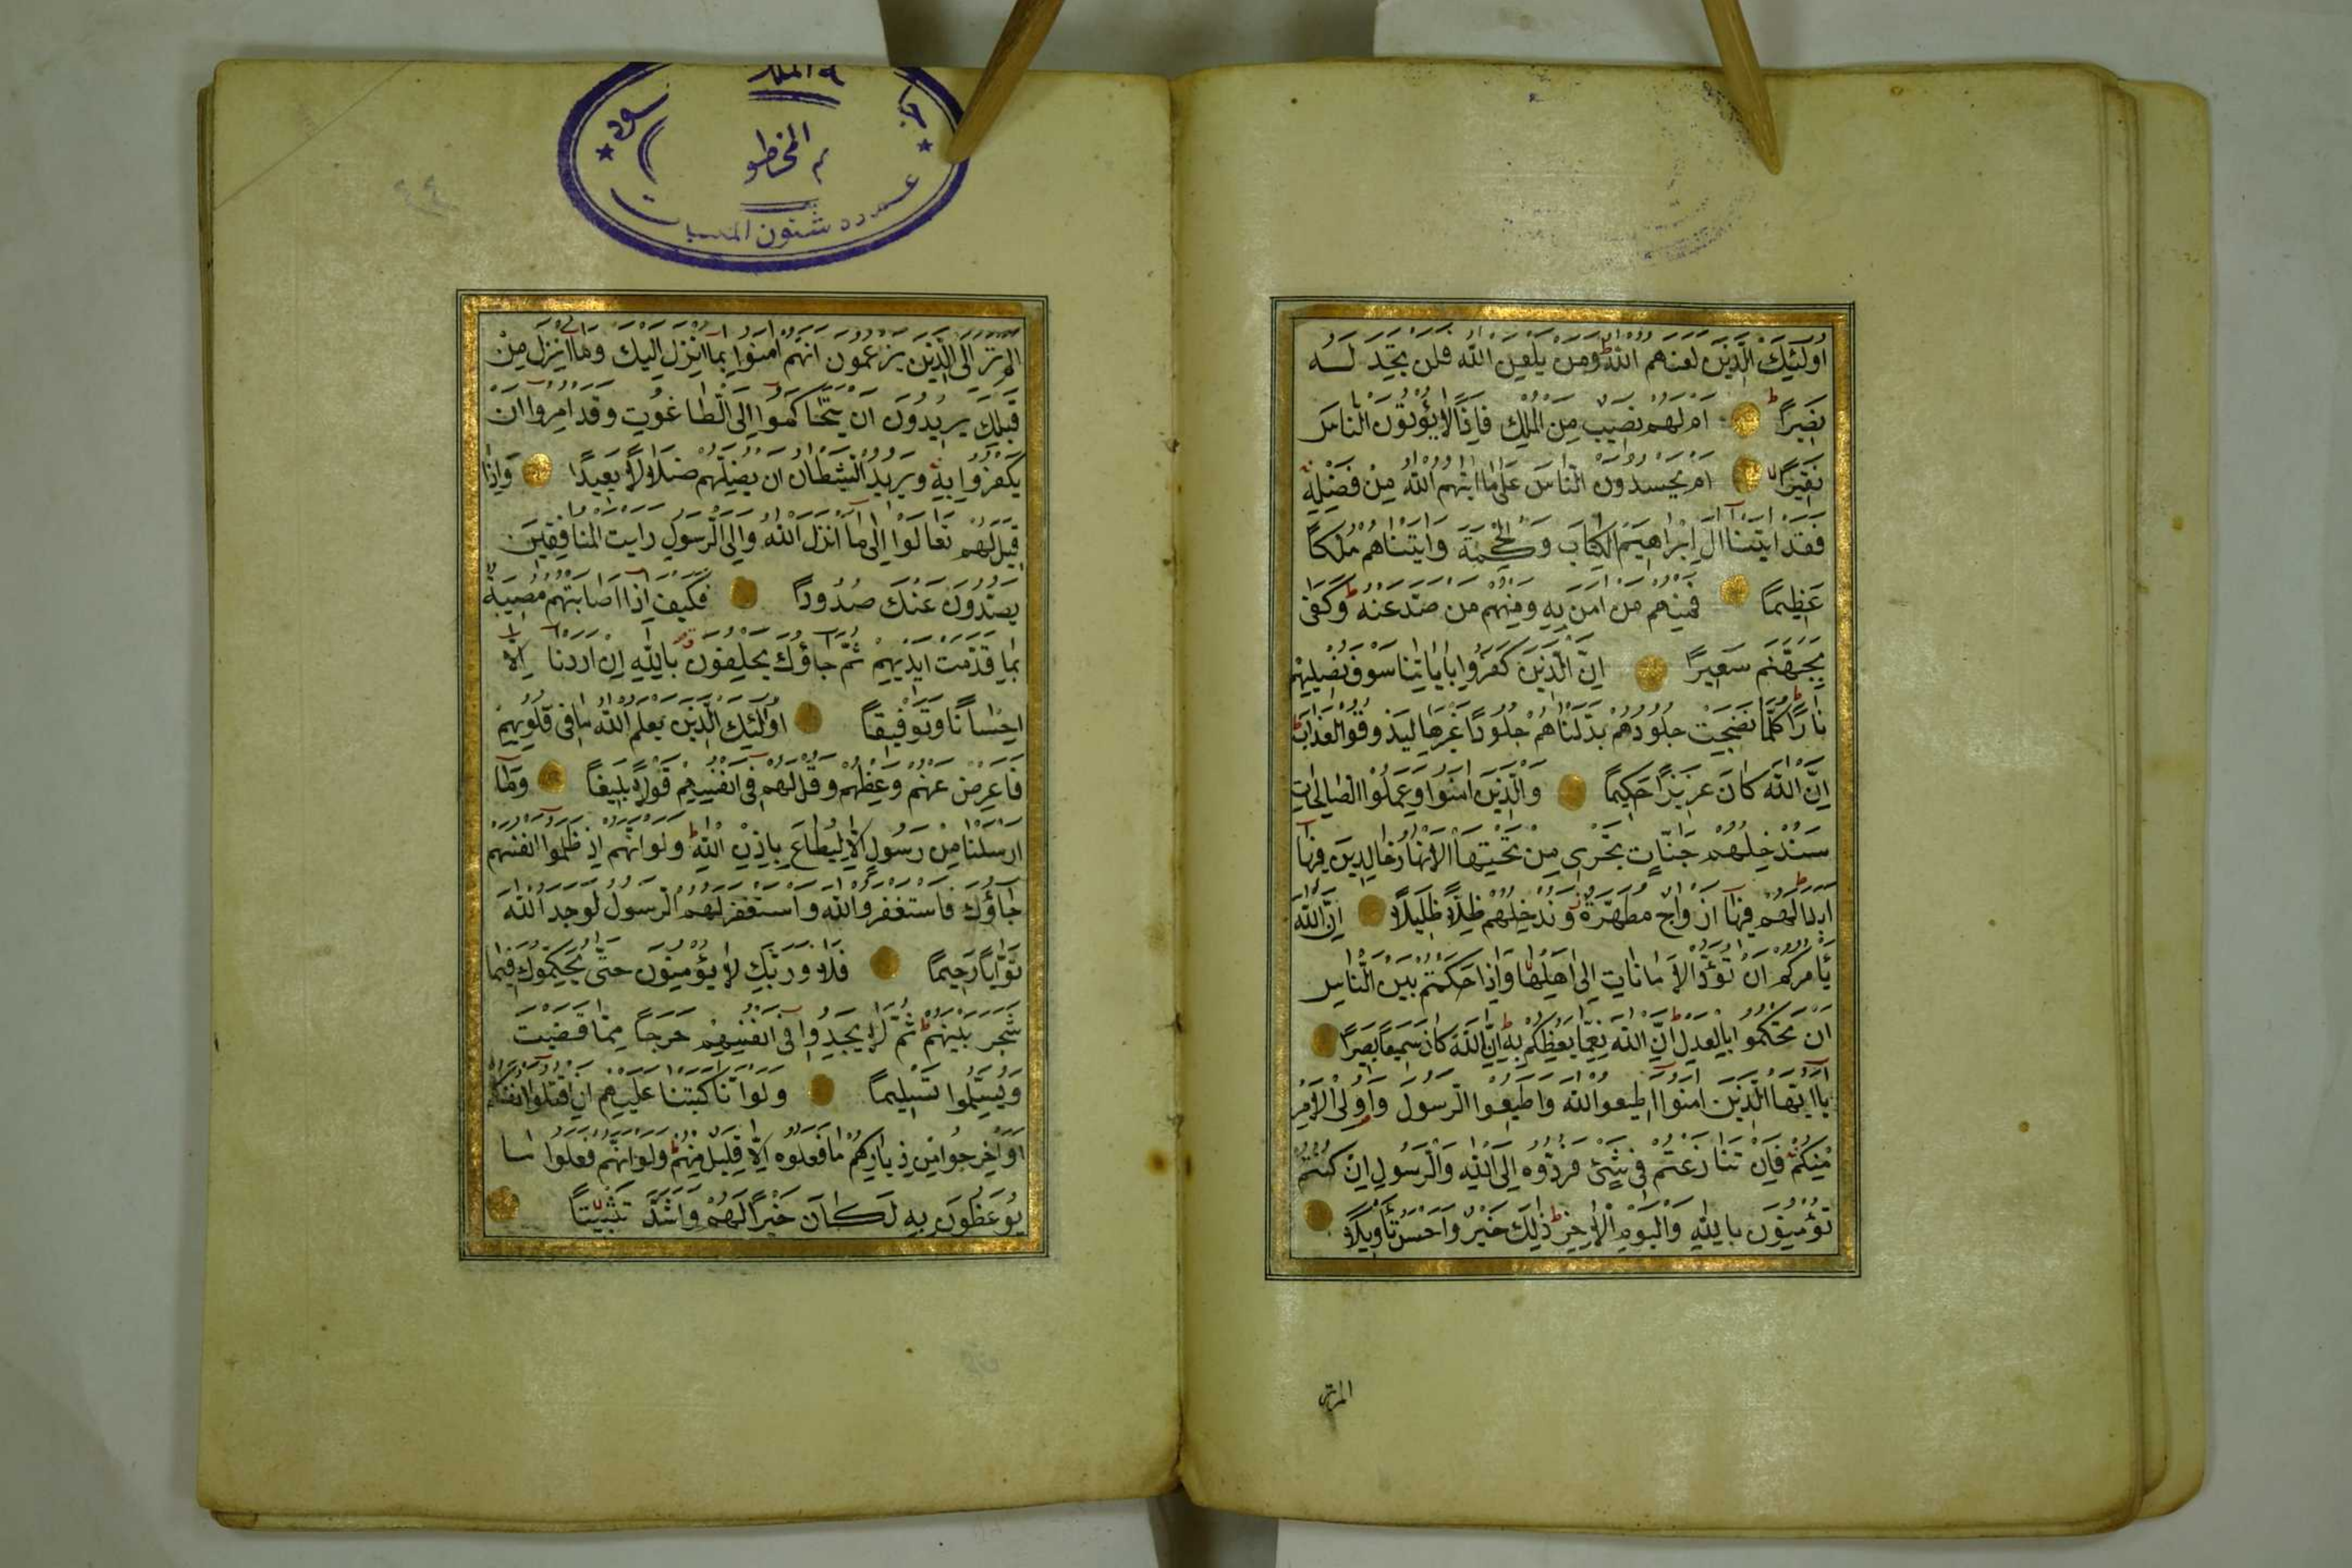 اولئك الذين لعنهم الله ومن يلعن الله فلن تجد له
نصيرا ام لهم نصيب من الملك فاذا لا يؤتون الناس
نقيرا ام يحسدون الناس على ما اتيهم الله من فضله
فقد اتينا ال ابراهيم الكتاب والحكمة واتيناهم ملكا
عظيما فمنهم من امن به ومنهم من صد عنه وكفى
بجهنم سعيرا ان الذين كفروا باياتنا سوف نصليهم
نارا كلما نضجت جلودهم بدلناهم جلودا غيرها ليذوقوا العذاب
ان الله كان عزيزا حكيما والذين امنوا وعملوا الصالحات
سندخلهم جنات تجري من تحتها الانهار خالدين فيها
ابدا لهم فيها ازواج مطهرة وندخلهم ظلا ظليلا ان الله
يأمركم ان تؤدوا الامانات الى اهلها واذا حكمتم بين الناس
ان تحكموا بالعدل ان الله نعما يعظكم به ان الله كان سميعا بصيرا
يا ايها الذين امنوا اطيعوا الله واطيعوا الرسول واولى الامر
منكم فان تنازعتم فى شئ فردوه الى الله والرسول ان كنتم
تؤمنون بالله واليوم الاخر ذلك خير واحسن تأويلا
المتر
المخطو
شئون المكتبات
الم تر الى الذين يزعمون انهم امنوا بما انزل اليك وما انزل من
قبلك يريدون ان يتحاكموا الى الطاغوت وقد امروا ان
يكفروا به ويريد الشيطان ان يضلهم ضلالا بعيدا واذا
قيل لهم تعالوا الى ما انزل الله والى الرسول رايت المنافقين
يصدون عنك صدودا فكيف اذا اصابتهم مصيبة
بما قدمت ايديهم ثم جاؤك يحلفون بالله ان اردنا الا
احسانا وتوفيقا اولئك الذين يعلم الله ما فى قلوبهم
فاعرض عنهم وعظهم وقل لهم فى انفسهم قولا بليغا وما
ارسلنا من رسول الا ليطاع باذن الله ولو انهم اذ ظلموا انفسهم
جاؤك فاستغفروا الله واستغفر لهم الرسول لوجدوا الله
توابا رحيما فلا وربك لا يؤمنون حتى يحكموك فيما
شجر بينهم ثم لا يجدوا فى انفسهم حرجا مما قضيت
ويسلموا تسليما ولو انا كتبنا عليهم ان اقتلوا انفسكم
او اخرجوا من دياركم ما فعلوه الا قليل منهم ولو انهم فعلوا ما
يوعظون به لكان خيرا لهم واشد تثبيتا